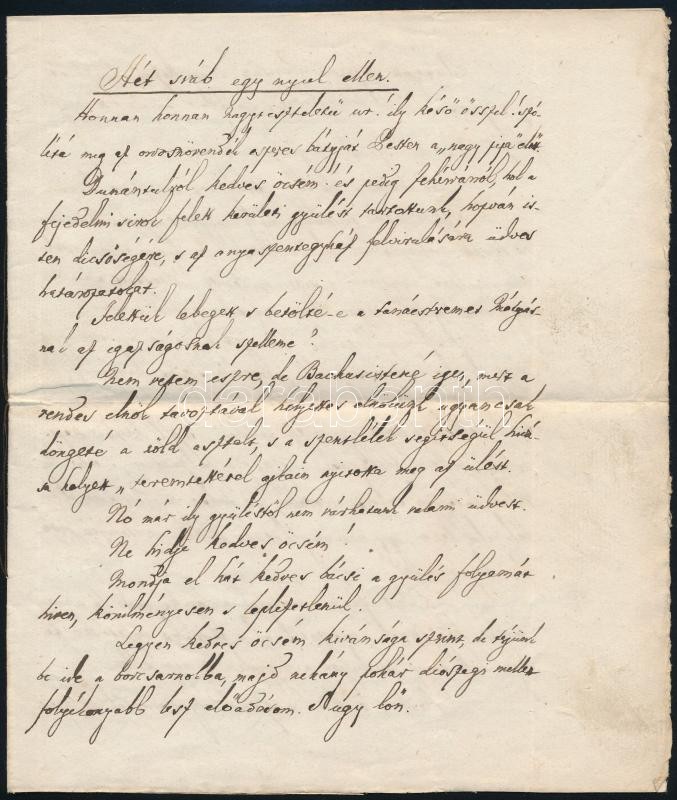 Hét sváb egy nyul ellen.
Honnan honnan nagytiszteletü ur. ily késö ősszel. szó-
litá meg az orvosnövendék bátyját Pesten a „nagy pipa" előtt.
Dunántulról kedves öcsém! és pedig fehérvárról, hol a
fejedelmi sirok felett kerületi gyülést tartottunk, hozván is-
ten dicsőségére, s az anyaszentegyház felvirulására üdvös
határozatokat.
lebegett s betölté-e a tanácstermet
nak az igazságosnak szelleme?
Nem vettem észre, de Bachus istené igen, mert a
rendes elnök távoztával helyettes elnökünk ugyancsak
döngeté a zöld asztalt, s a szentlélek segitségül hivá-
sa helyett „teremtettézve ajtain nyitotta meg az ülést.
Nó már ily gyüléstöl nem várhatunk valami üdvest.
Ne higyje kedves öcsém!
Mondja el hát kedves bácsi a gyülés folyamát
hiven, körülményesen s leplezetlenül.
Legyen kedves öcsém kivánsága szerint, de térjünk
be ide a borcsarnokba, majd néhány pohár diószegi mellett
folyékonyabb lesz előadásom. Ugy lőn.
darabanth